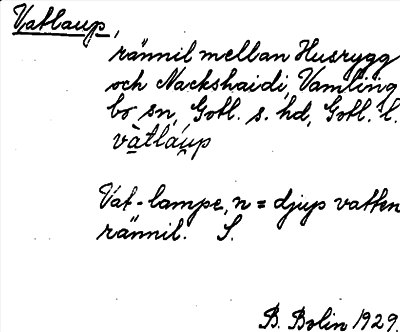 Vatlaup,
rännil mellan Husrygg
och Nackshaidi, Vamling
bo sn, Gotl. s. hd, Gotl. l.
vàtláu̯p
Vat-lampe, n = djup vatten
rännil. S.
B. Bolin 1929.